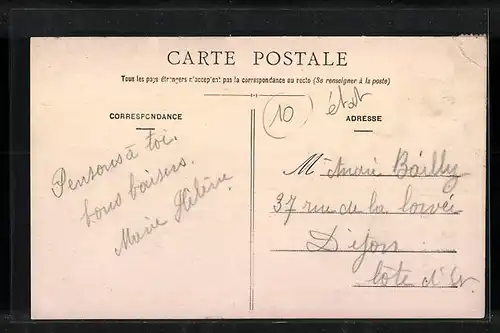 CARTE POSTALE
Tous les pays étrangers n'acceptent pas la correspondance au recto (Se renseigner à la poste)
10 état
CORRESPONDANCE
ADRESSE
Pensons à toi.
bons baisers.
Marie Hélène.
Mr André Bailly
37 rue de la Corvée
Dijon
Côte d'Or